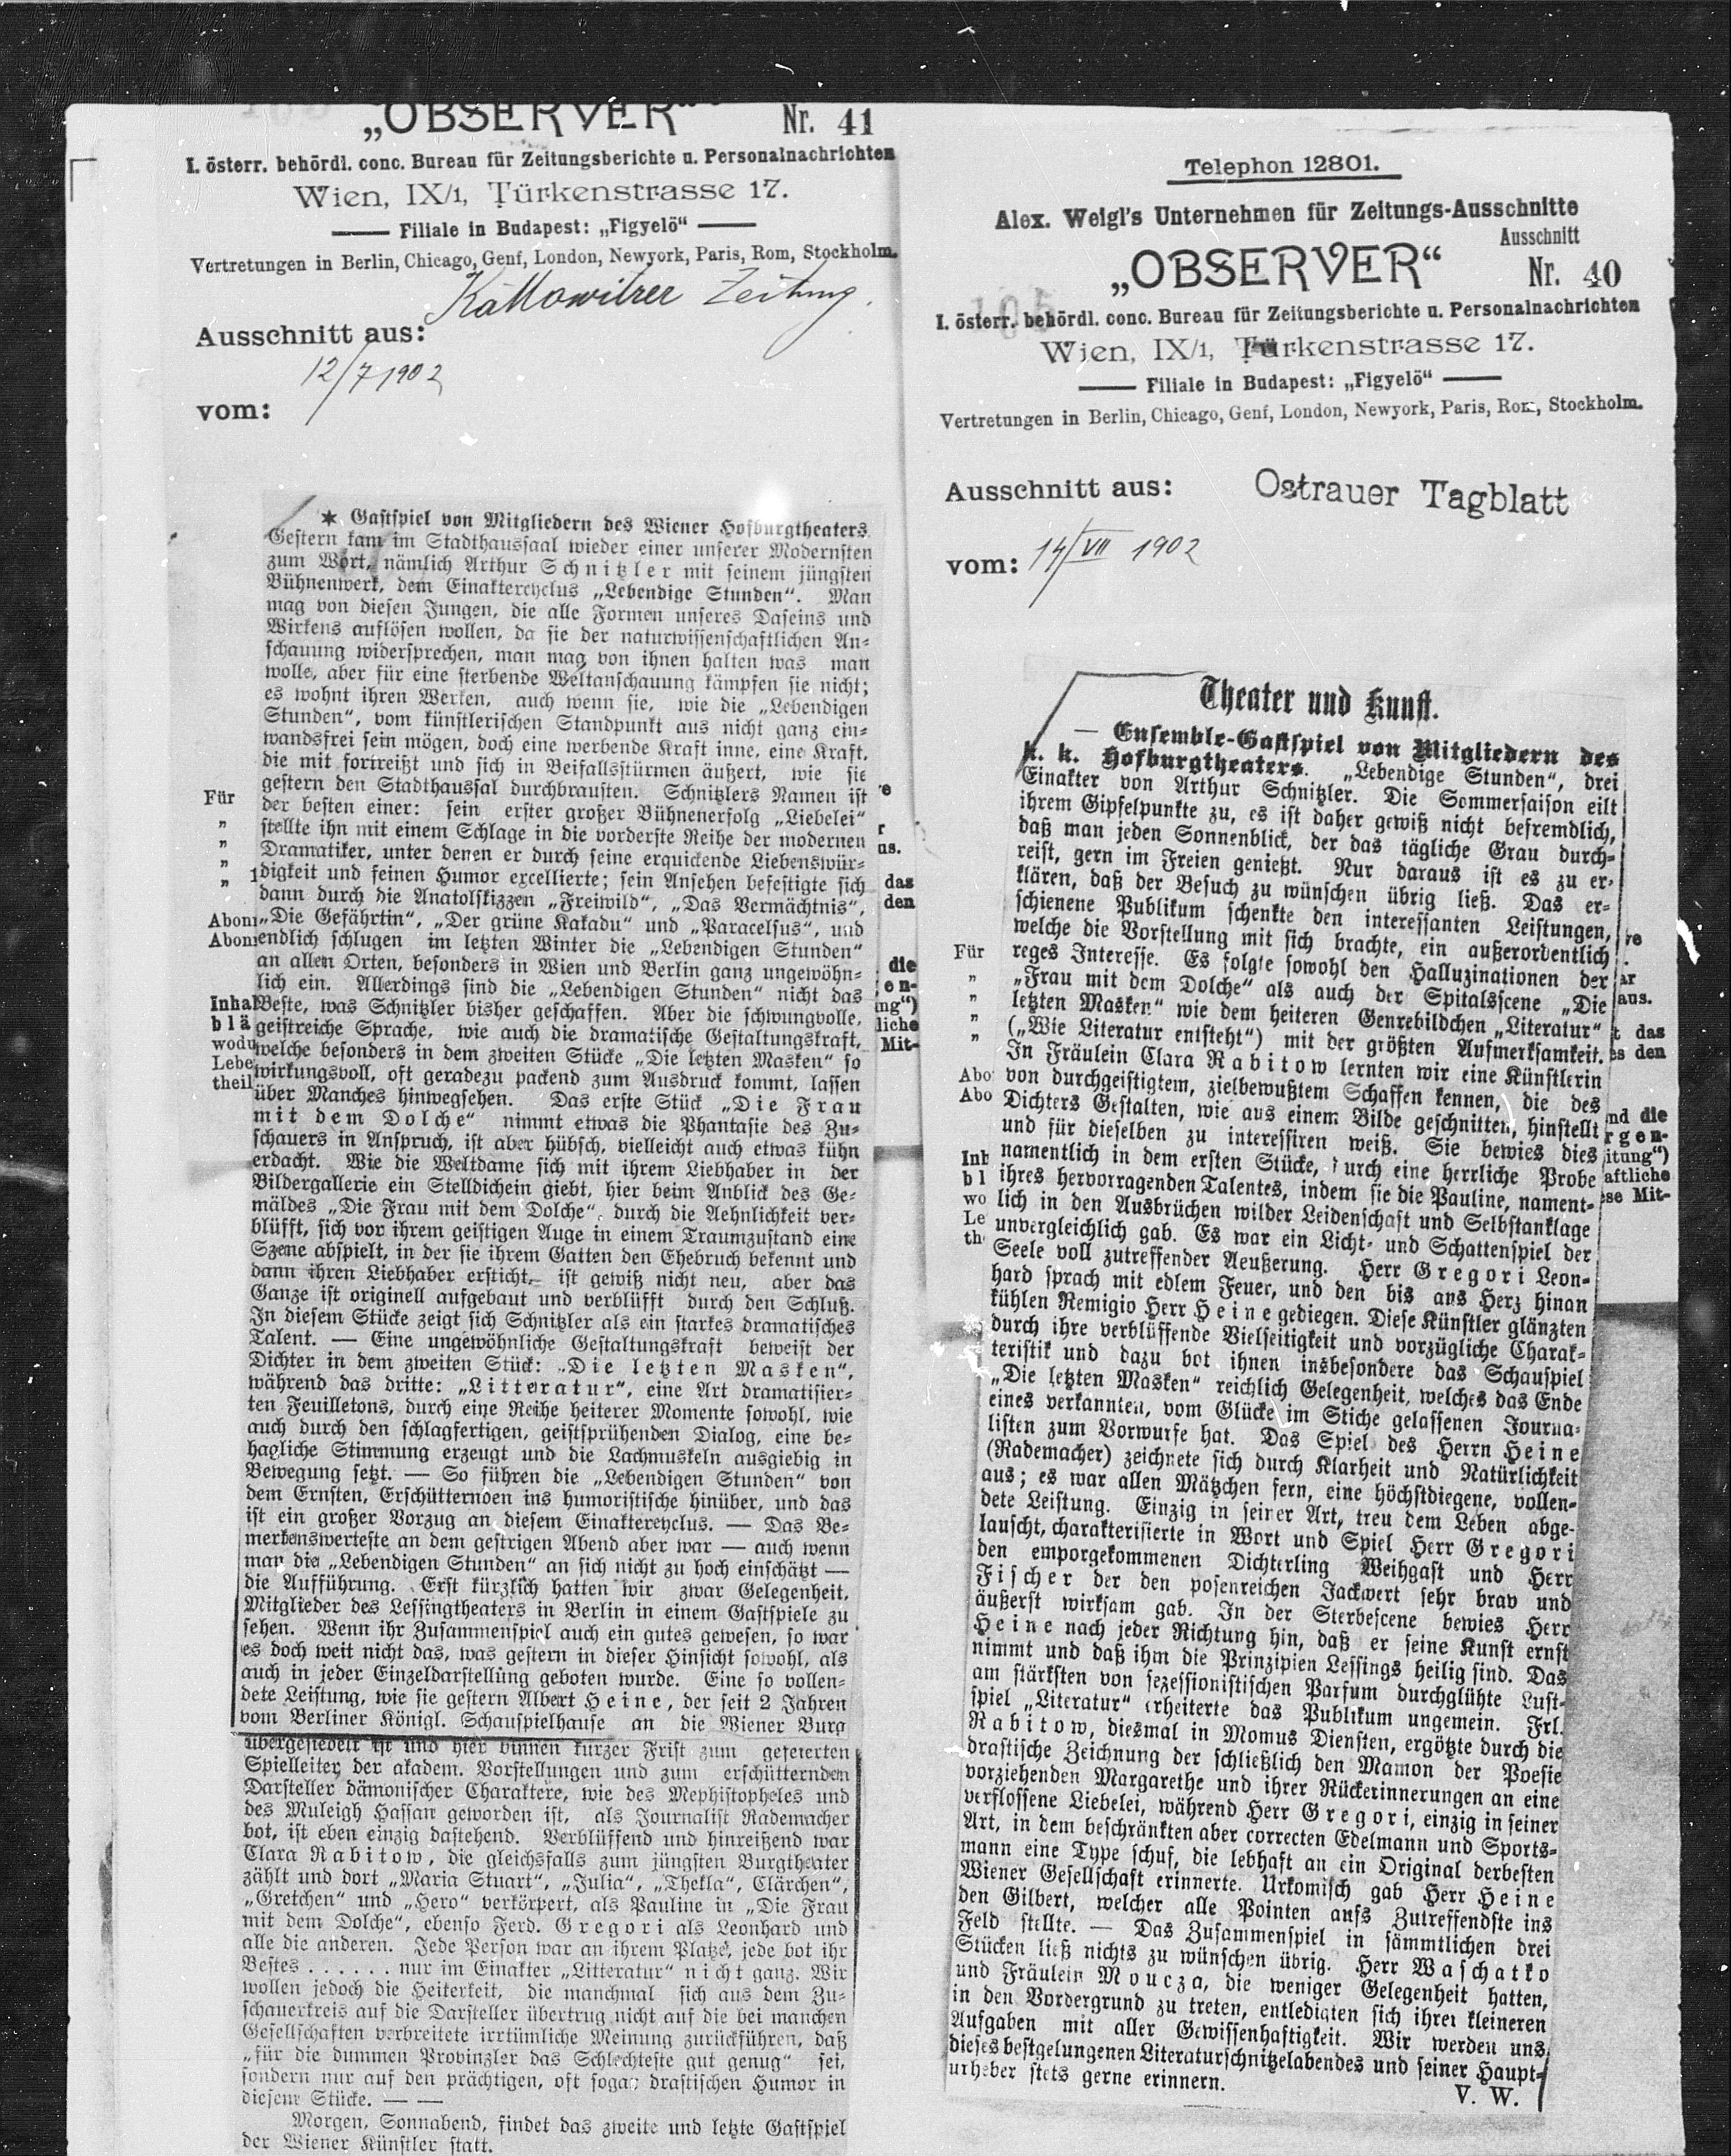 „OBSERVER“ Nr. 41
I. österr. behördl. conc. Bureau für Zeitungsberichte u. Personalnachrichten
Wien, IX/1, Türkenstrasse 17.
Filiale in Budapest: „Figyelö“
Vertretungen in Berlin, Chicago, Genf, London, Newyork, Paris, Rom, Stockholm.
Kattowitzer Zeitung.
Ausschnitt aus:
12/7 1902
vom:
* Gastspiel von Mitgliedern des Wiener Hofburgtheaters
Gestern kam im Stadthaussaal wieder einer unserer Modernsten
zum Wort, nämlich Arthur Schnitzler mit seinem jüngsten
Bühnenwerk, dem Einaktercyclus „Lebendige Stunden“. Man
mag von diesen Jungen, die alle Formen unseres Daseins und
Wirkens auflösen wollen, da sie der naturwissenschaftlichen An-
schauung widersprechen, man mag von ihnen halten was man
wolle, aber für eine sterbende Weltanschauung kämpfen sie nicht;
es wohnt ihren Werken, auch wenn sie, wie die „Lebendigen
Stunden“, vom künstlerischen Standpunkt aus nicht ganz ein-
wandsfrei sein mögen, doch eine werbende Kraft inne, eine Kraft,
die mit fortreißt und sich in Beifallsstürmen äußert, wie sie
gestern den Stadthaussal durchbrausten. Schnitzlers Namen ist
der besten einer: sein erster großer Bühnenerfolg „Liebelei“
stellte ihn mit einem Schlage in die vorderste Reihe der modernen
Dramatiker, unter denen er durch seine erquickende Liebenswür-
digkeit und feinen Humor excellierte; sein Ansehen befestigte sich
dann durch die Anatolskizzen „Freiwild“, „Das Vermächtnis“,
„Die Gefährtin“, „Der grüne Kakadu“ und „Paracelsus“, und
endlich schlugen im letzten Winter die „Lebendigen Stunden“
an allen Orten, besonders in Wien und Berlin ganz ungewöhn-
lich ein. Allerdings sind die „Lebendigen Stunden“ nicht das
Beste, was Schnitzler bisher geschaffen. Aber die schwungvolle,
geistreiche Sprache, wie auch die dramatische Gestaltungskraft,
welche besonders in dem zweiten Stücke „Die letzten Masken“ so
wirkungsvoll, oft geradezu packend zum Ausdruck kommt, lassen
über Manches hinwegsehen. Das erste Stück „Die Frau
mit dem Dolche“ nimmt etwas die Phantasie des Zu-
schauers in Anspruch, ist aber hübsch, vielleicht auch etwas kühn
erdacht. Wie die Weltdame sich mit ihrem Liebhaber in der
Bildergallerie ein Stelldichein giebt, hier beim Anblick des Ge-
mäldes „Die Frau mit dem Dolche“, durch die Aehnlichkeit ver-
blüfft, sich vor ihrem geistigen Auge in einem Traumzustand eine
Szene abspielt, in der sie ihrem Gatten den Ehebruch bekennt und
dann ihren Liebhaber ersticht, ist gewiß nicht neu, aber das
Ganze ist originell aufgebaut und verblüfft durch den Schluß.
In diesem Stücke zeigt sich Schnitzler als ein starkes dramatisches
Talent. — Eine ungewöhnliche Gestaltungskraft beweist der
Dichter in dem zweiten Stück: „Die letzten Masken“,
während das dritte: „Litteratur“, eine Art dramatisier-
ten Feuilletons, durch eine Reihe heiterer Momente sowohl, wie
auch durch den schlagfertigen, geistsprühenden Dialog, eine be-
hagliche Stimmung erzeugt und die Lachmuskeln ausgiebig in
Bewegung setzt. — So führen die „Lebendigen Stunden“ von
dem Ernsten, Erschütternden ins humoristische hinüber, und das
ist ein großer Vorzug an diesem Einaktercyclus. — Das Be-
merkenswerteste an dem gestrigen Abend aber war — auch wenn
man die „Lebendigen Stunden“ an sich nicht zu hoch einschätzt —
die Aufführung. Erst kürzlich hatten wir zwar Gelegenheit,
Mitglieder des Lessingtheaters in Berlin in einem Gastspiele zu
sehen. Wenn ihr Zusammenspiel auch ein gutes gewesen, so war
es doch weit nicht das, was gestern in dieser Hinsicht sowohl, als
auch in jeder Einzeldarstellung geboten wurde. Eine so vollen-
dete Leistung, wie sie gestern Albert Heine, der seit 2 Jahren
vom Berliner Königl. Schauspielhause an die Wiener Burg
übergesiedelt ist und hier binnen kurzer Frist zum gefeierten
Spielleiter der akadem. Vorstellungen und zum erschütternden
Darsteller dämonischer Charaktere, wie des Mephistopheles und
des Muleigh Hassan geworden ist, als Journalist Rademacher
bot, ist eben einzig dastehend. Verblüffend und hinreißend war
Clara Rabitow, die gleichsfalls zum jüngsten Burgtheater
zählt und dort „Maria Stuart“, „Julia“, „Thekla“, Clärchen“,
„Gretchen“ und „Hero“ verkörpert, als Pauline in „Die Frau
mit dem Dolche“, ebenso Ferd. Gregori als Leonhard und
alle die anderen. Jede Person war an ihrem Platze, jede bot ihr
Bestes . . . . . . nur im Einakter „Litteratur“ nicht ganz. Wir
wollen jedoch die Heiterkeit, die manchmal sich aus dem Zu-
schauerkreis auf die Darsteller übertrug nicht auf die bei manchen
Gesellschaften verbreitete irrtümliche Meinung zurückführen, daß
„für die dummen Provinzler das Schlechteste gut genug“ sei,
sondern nur auf den prächtigen, oft sogar drastischen Humor in
diesem Stücke. — —
Morgen, Sonnabend, findet das zweite und letzte Gastspiel
der Wiener Künstler statt.
Für
„
„
„
„
Inhal
blä
wodu
Lebe
theil
das
den
die
en-
ng“)
liche
Mit-
Telephon 12801.
Alex. Weigl's Unternehmen für Zeitungs-Ausschnitte
Ausschnitt
„OBSERVER“ Nr. 40
105
I. österr. behördl. conc. Bureau für Zeitungsberichte u. Personalnachrichten
Wien, IX/1, Türkenstrasse 17.
Filiale in Budapest: „Figyelö“
Vertretungen in Berlin, Chicago, Genf, London, Newyork, Paris, Rom, Stockholm.
Ausschnitt aus: Ostrauer Tagblatt
vom: 14/VII 1902
Theater und Kunst.
— Ensemble-Gastspiel von Mitgliedern des
k. k. Hofburgtheaters. „Lebendige Stunden“, drei
Einakter von Arthur Schnitzler. Die Sommersaison eilt
ihrem Gipfelpunkte zu, es ist daher gewiß nicht befremdlich,
daß man jeden Sonnenblick, der das tägliche Grau durch-
reist, gern im Freien genießt. Nur daraus ist es zu er-
klären, daß der Besuch zu wünschen übrig ließ. Das er-
schienene Publikum schenkte den interessanten Leistungen,
welche die Vorstellung mit sich brachte, ein außerordentlich
reges Interesse. Es folgte sowohl den Halluzinationen der
„Frau mit dem Dolche“ als auch der Spitalsscene „Die
letzten Masken“ wie dem heiteren Genrebildchen „Literatur“
(„Wie Literatur entsteht“) mit der größten Aufmerksamkeit.
In Fräulein Clara Rabitow lernten wir eine Künstlerin
von durchgeistigtem, zielbewußtem Schaffen kennen, die des
Dichters Gestalten, wie aus einem Bilde geschnitten, hinstellt
und für dieselben zu interessiren weiß. Sie bewies dies
namentlich in dem ersten Stücke, durch eine herrliche Probe
ihres hervorragenden Talentes, indem sie die Pauline, nament-
lich in den Ausbrüchen wilder Leidenschaft und Selbstanklage
unvergleichlich gab. Es war ein Licht- und Schattenspiel der
Seele voll zutreffender Aeußerung. Herr Gregori Leon-
hard sprach mit edlem Feuer, und den bis ans Herz hinan
kühlen Remigio Herr Heine gediegen. Diese Künstler glänzten
durch ihre verblüffende Vielseitigkeit und vorzügliche Charak-
teristik und dazu bot ihnen insbesondere das Schauspiel
„Die letzten Masken“ reichlich Gelegenheit, welches das Ende
eines verkannten, vom Glücke im Stiche gelassenen Journa-
listen zum Vorwurfe hat. Das Spiel des Herrn Heine
(Rademacher) zeichnete sich durch Klarheit und Natürlichkeit
aus; es war allen Mätzchen fern, eine höchstdiegene, vollen-
dete Leistung. Einzig in seiner Art, treu dem Leben abge-
lauscht, charakterisierte in Wort und Spiel Herr Gregori
den emporgekommenen Dichterling Weihgast und Herr
Fischer der den posenreichen Jackwert sehr brav und
äußerst wirksam gab. In der Sterbescene bewies Herr
Heine nach jeder Richtung hin, daß er seine Kunst ernst
nimmt und daß ihm die Prinzipien Lessings heilig sind. Das
am stärksten von sezessionistischen Parfum durchglühte Lust-
spiel „Literatur“ erheiterte das Publikum ungemein. Frl.
Rabitow, diesmal in Momus Diensten, ergötzte durch die
drastische Zeichnung der schließlich den Mamon der Poesie
vorziehenden Margarethe und ihrer Rückerinnerungen an eine
verflossene Liebelei, während Herr Gregori, einzig in seiner
Art, in dem beschränkten aber correcten Edelmann und Sports-
mann eine Type schuf, die lebhaft an ein Original derbesten
Wiener Gesellschaft erinnerte. Urkomisch gab Herr Heine
den Gilbert, welcher alle Pointen aufs Zutreffendste ins
Feld stellte. — Das Zusammenspiel in sämmtlichen drei
Stücken ließ nichts zu wünschen übrig. Herr Waschatko
und Fräulein Moucza, die weniger Gelegenheit hatten,
in den Vordergrund zu treten, entledigten sich ihrer kleineren
Aufgaben mit aller Gewissenhaftigkeit. Wir werden uns
dieses bestgelungenen Literaturschnitzelabendes und seiner Haupt-
urheber stets gerne erinnern.
V. W.
Für
„
„
„
„
Abo
Abo
Inh
bl
wo
Le
th
aus.
t das
es den
nd die
rgen-
itung“)
aftliche
se Mit-